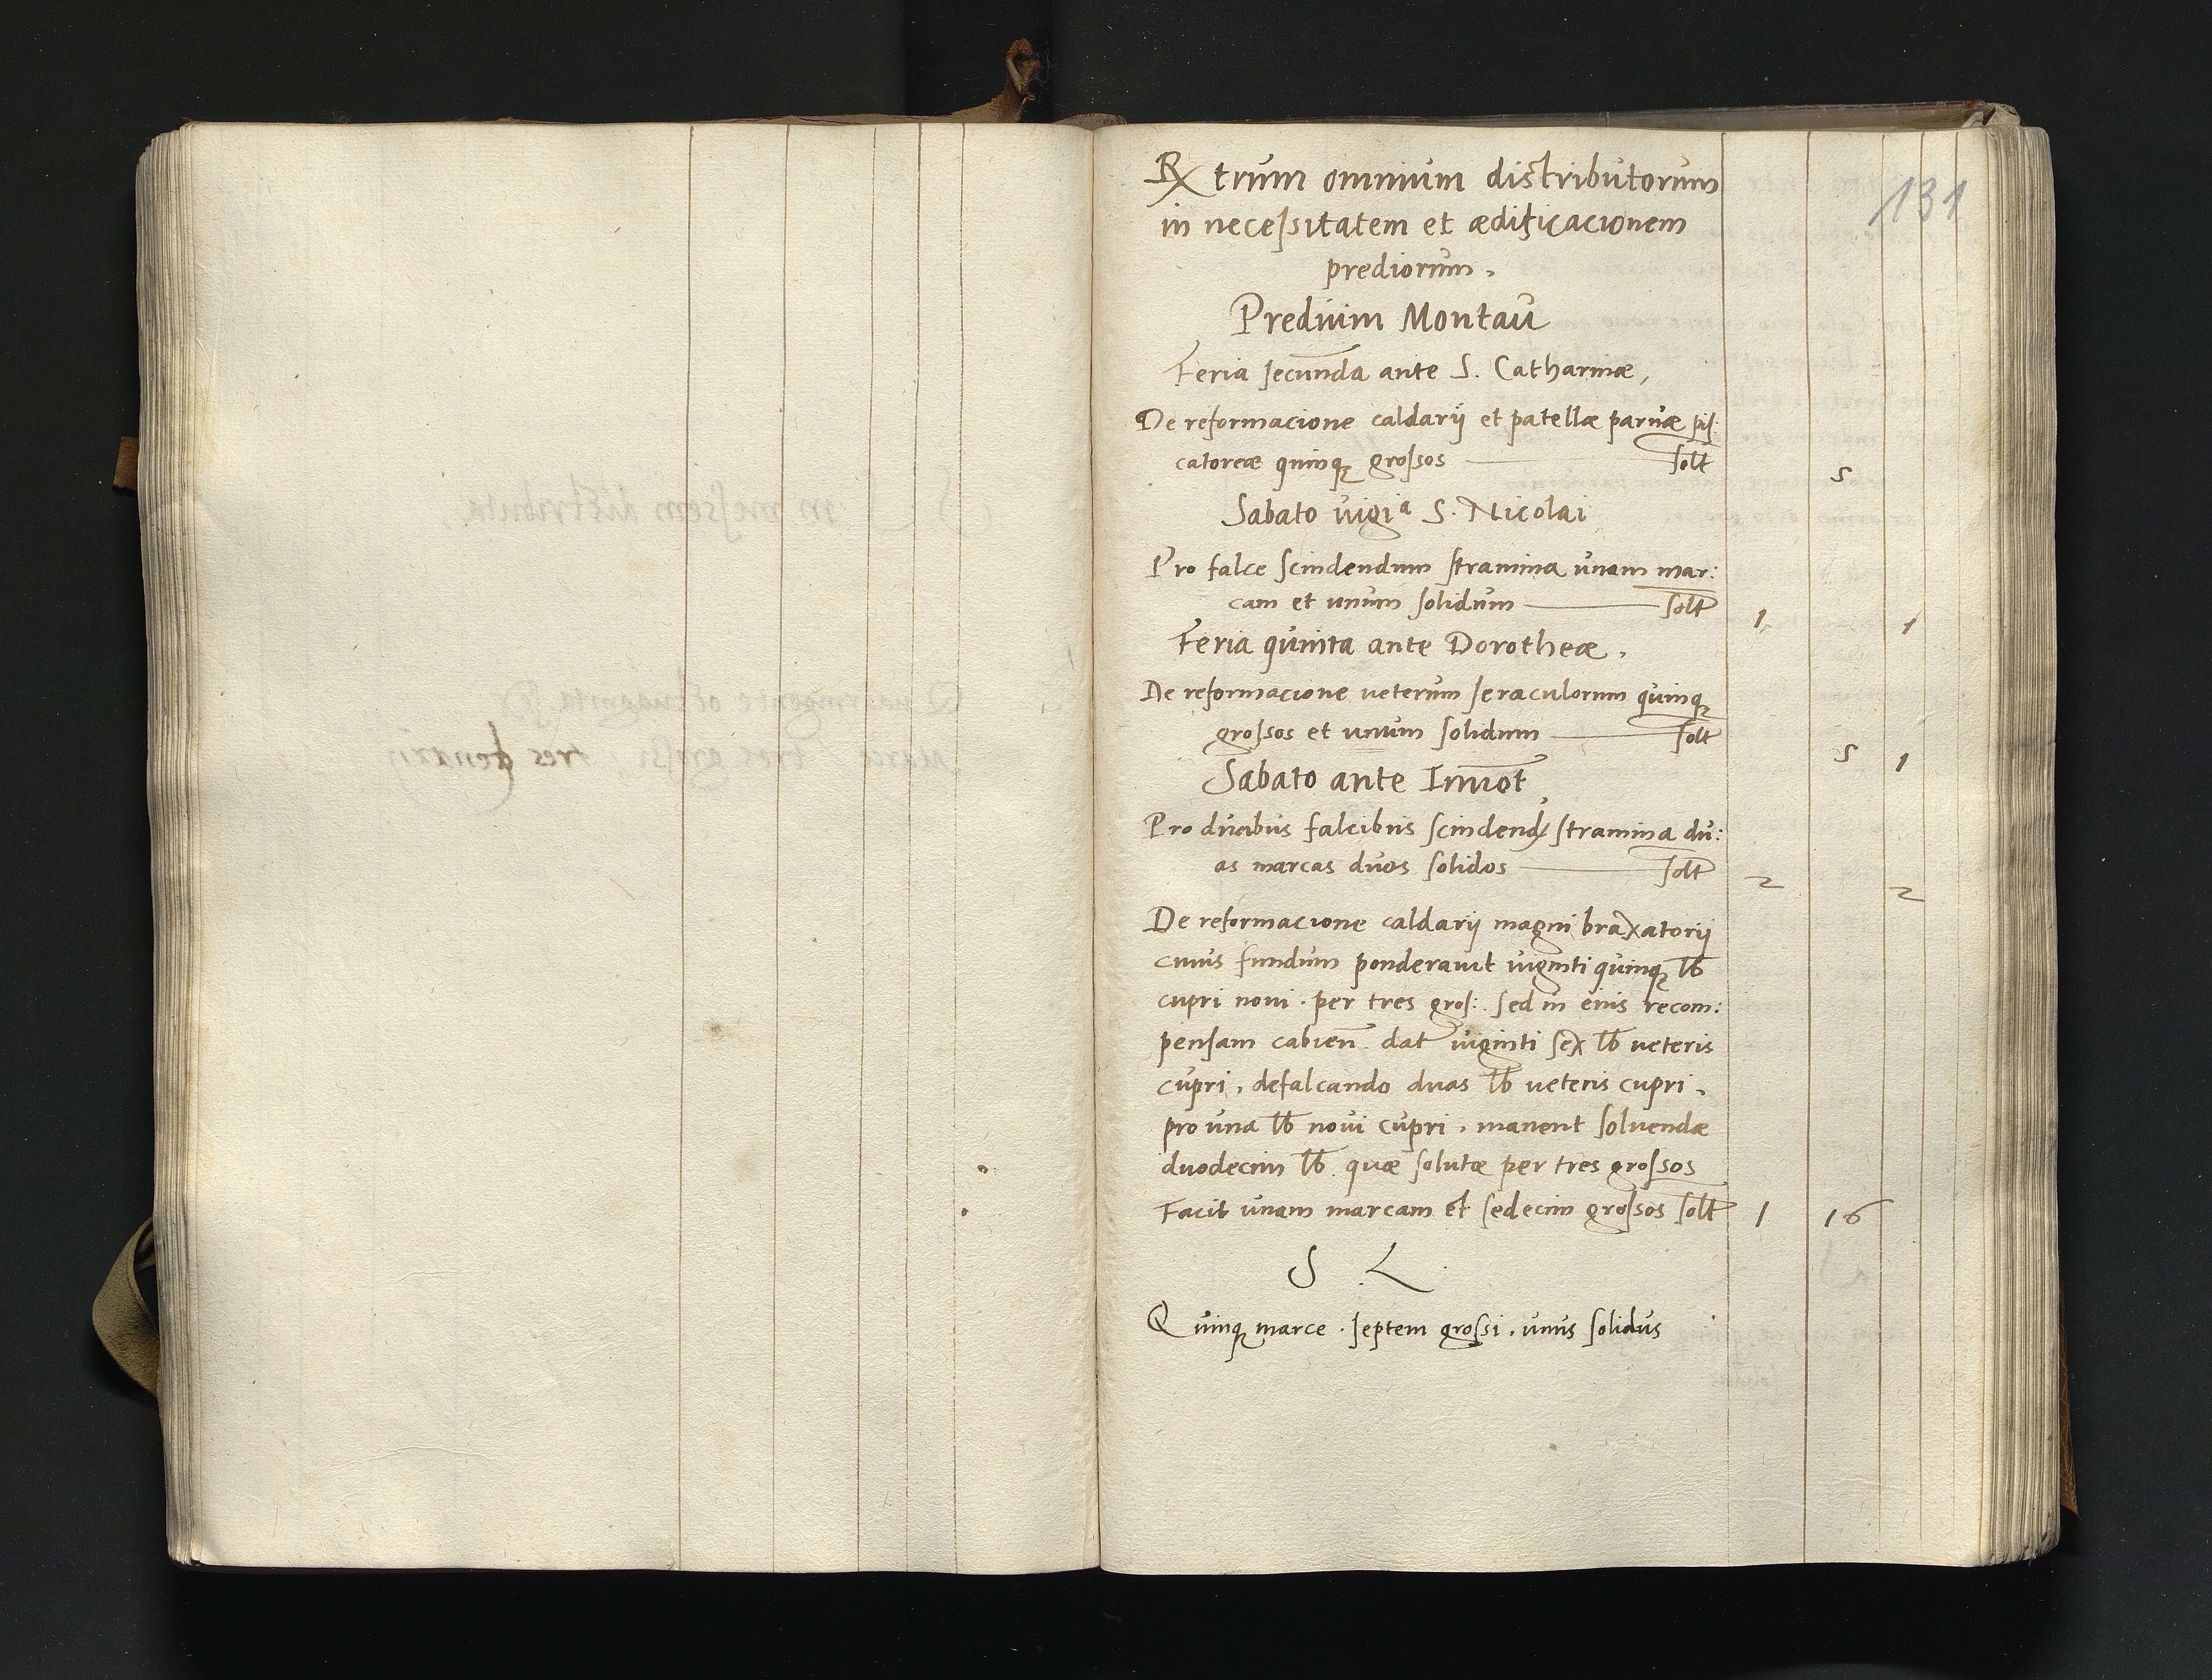 131
Rx trum omnium distributorum
in necessitatem et ædificacionem
prediorum.
Predium Montau
Feria secunda ante S. Catharinæ,
De reformacione caldarij et patellæ parvæ pis:
catoreæ quinq3 grossos — solt 5
Sabato vigia S. Nicolai
Pro falce scindendum stramina unam mar:
cam et unum solidum — solt 1 1
Feria quinta ante Dorotheæ.
De reformacione veterum seraculorum quinq3
grossos et unum solidum — solt 5 1
Sabato ante Invot
Pro duabus falcibus scindend stramina du:
as marcas duos solidos — solt 2 2
De reformacione caldarij magni braxatorij
cuius fundum ponderavit viginti quinq3 lb
cupri novi. per tres gros: sed in eius recom:
pensam dat viginti sex lb veteris
cupri, defalcando duas lb veteris cupri,
pro una lb novi cupri. manent solvendæ
duodecim lb quæ solutæ per tres grossos
Facit unam marcam et sedecim grossos solt 1 16
S L
Quinq3 marce. septem grossi. unus solidus